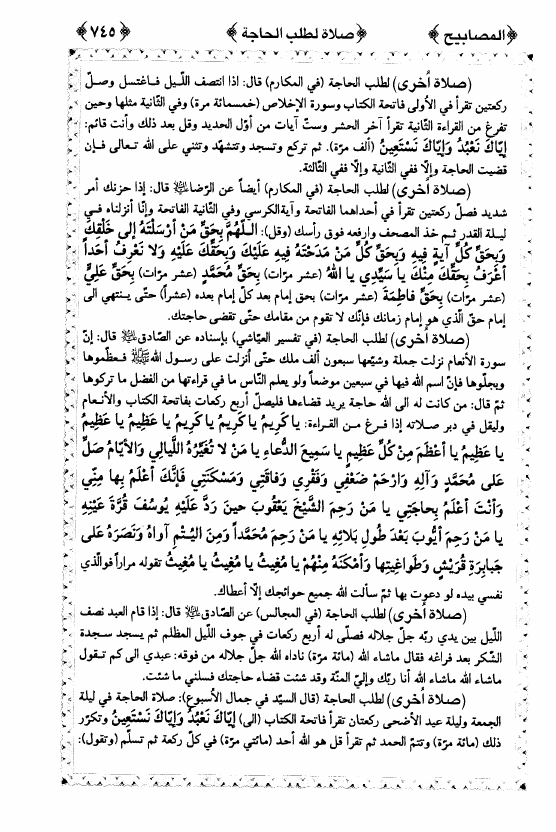 ﴿المصابيح﴾ ﴿صلاة لطلب الحاجة﴾ ﴿٧٤٥﴾
(صلاة أُخرى) لطلب الحاجة (في المكارم) قال: اذا انتصف اللّيل فـاغتسل وصـلّ
ركعتين تقرأ في الأولى فاتحة الكتاب وسورة الإخلاص (خمسمائة مرة) وفي الثّانية مثلها وحين
تفرغ من القراءة الثّانية تقرأ آخر الحشر وستّ آيات من أوّل الحديد وقل بعد ذلك وأنت قائم:
إِيّاكَ نَعْبُدُ وَإِيّاكَ نَسْتَعِينُ (ألف مرّة). ثم تركع وتسجد وتتشهّد وتثني على الله تـعالى فـإن
قضيت الحاجة وإلّا ففي الثّانية وإلّا ففي الثّالثة.
(صلاة أُخرى) لطلب الحاجة (في المكارم) أيضاً عن الرّضا ﷺ قال: إذا حزنك أمر
شديد فصلّ ركعتين تقرأ في أحداهما الفاتحة وآيةالكرسي وفي الثّانية الفاتحة وإنّا أنزلناه فـي
ليـلة القدر ثـم خذ المصحف وارفعه فوق رأسك (وقل): اللّهمَّ بِحَقِّ مَنْ أَرْسَلْتَهُ إِلى خَلْقِكَ
وَبِحَقِّ كُلِّ آيةٍ فِيهِ وَبِحَقِّ كُلِّ مَنْ مَدَحْتَهُ فِيهِ عَلَيْكَ وَبِحَقِّكَ عَلَيْهِ وَلا نَعْرِفُ أَحَداً
أَعْرَفُ بِحَقِّكَ مِنْكَ يا سَيِّدِي يا اللهُ (عشر مرّات) بِحَقِّ مُحَمَّدٍ (عشر مرّات) بِحَقِّ عَلِيٍّ
(عشر مرّات) بِحَقِّ فاطِمَةَ (عشر مرّات) بحق إمام بعد كلّ إمام بعده (عشراً) حتّى يـنتهى الى
إمام حقّ الّذي هو إمام زمانك فإنّك لا تقوم من مقامك حتى تقضى حاجتك.
(صلاة أُخرى) لطلب الحاجة (في تفسير العيّاشي) بإسناده عن الصّادق ﷺ قال: إنّ
سورة الأنعام نزلت جملة وشيّعها سبعون ألف ملك حتّى أنزلت على رسـول الله ﷺ فـعظّموها
وبجلّوها فإنّ اسم الله فيها في سبعين موضعاً ولو يعلم النّاس ما في قراءتها من الفضل ما تركوها
ثمّ قال: من كانت له الى الله حاجة يريد قضاءها فليصلّ أربع ركعات بفاتحة الكتاب والأنـعام
وليقل في دبر صلاته إذا فـرغ مـن القراءة: يا كَرِيمُ يا كَرِيمُ يا كَرِيمُ يا عَظِيمُ يا عَظِيمُ
يا عَظِيمُ يا أَعْظَمَ مِنْ كُلِّ عَظِيمٍ يا سَمِيعَ الدُّعاءِ يا مَنْ لا تُغَيِّرُهُ اللَّيالِي وَالأَيّامُ صَلِّ
عَلى مُحَمَّدٍ وَآلِهِ وَارْحَمْ ضَعْفِي وَفَقْرِي وَفاقَتِي وَمَسْكَنَتِي فَإِنَّكَ أَعْلَمُ بِها مِنِّي
وَأَنْتَ أَعْلَمُ بِحاجَتِي يا مَنْ رَحِمَ الشَّيْخَ يَعْقُوبَ حِينَ رَدَّ عَلَيْهِ يُوسُفَ قُرَّةَ عَيْنِهِ
يا مَنْ رَحِمَ أَيُّوبَ بَعْدَ طُولِ بَلائِهِ يا مَنْ رَحِمَ مُحَمَّداً وَمِنَ اليُتْمِ آواهُ وَنَصَرَهُ عَلى
جَبابِرَةِ قُرَيْشٍ وَطَواغِيتِها وَأَمْكَنَهُ مِنْهُمْ يا مُغِيثُ يا مُغِيثُ يا مُغِيثُ تقوله مراراً فوالّذي
نفسي بيده لو دعوت بها ثمّ سألت الله جميع حوائجك إلّا أعطاك.
(صلاة أُخرى) لطلب الحاجة (في المجالس) عن الصّادق ﷺ قال: إذا قام العبد نصف
اللّيل بين يدي ربّه جلّ جلاله فصلّى له أربع ركعات في جوف اللّيل المظلم ثم يسجد سـجدة
الشّكر بعد فراغه فقال ماشاء الله (مائة مرّة) ناداه الله جلّ جلاله من فوقه: عبدي الى كم تـقول
ماشاء الله ماشاء الله أنا ربّك وإليّ المنّة وقد شئت قضاء حاجتك فسلني ما شئت.
(صلاة أُخرى) لطلب الحاجة (قال السيّد في جمال الأسبوع): صلاة الحاجة في ليلة
الجمعة وليلة عيد الأضحى ركعتان تقرأ فاتحة الكتاب (الى) إِيّاكَ نَعْبُدُ وَإِيّاكَ نَسْتَعِينُ وتكرّر
ذلك (مائة مرّة) وتتمّ الحمد ثم تقرأ قل هو الله أحد (مائتي مرّة) في كلّ ركعة ثم تسلّم (وتقول):